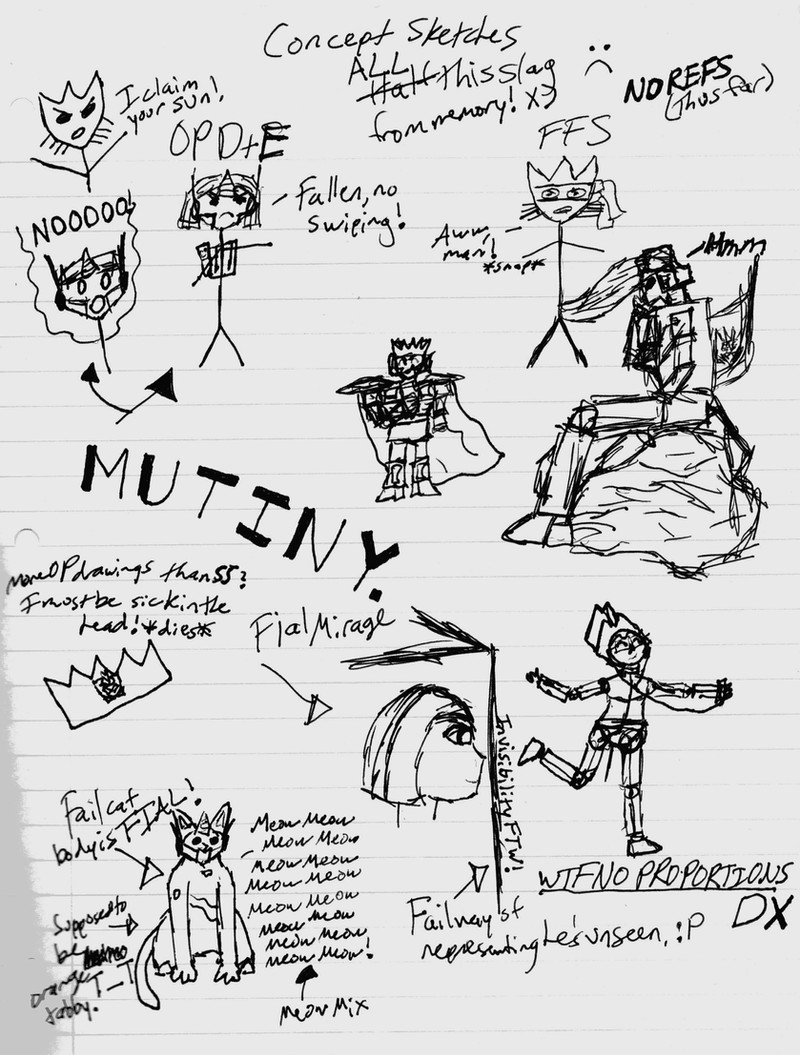 Concept Sketches
ALL
Half this slag
from memory! X3
NO REFS
(Thus far)
I claim
your sun!
OPD+E
FFS
Fallen, no
swiping!
NOODOO!
Aww,
man!
*snap*
Hmm
MUTINY.
More OP drawings than SS?
I must be sick in the
head! *dies*
Fial Mirage
Invisibility FTW!
Fail cat
body is FIAL!
Meow Meow
Meow Meow
Meow Meow
Meow Meow
Meow Meow
Meow Meow
Meow Meow
Meow Meow!
Meow Mix
Supposed to
be
orange T_T
tabby.
WTF NO PROPORTIONS
DX
Fail way of
representing he's unseen, :P